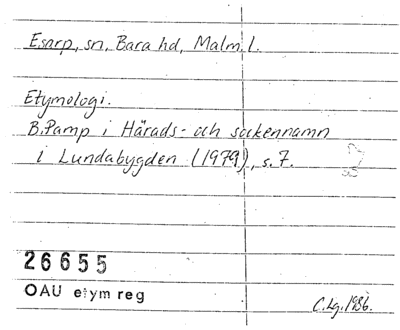 Esarp, sn, Bara hd, Malm. l.
Etymologi.
B. Pamp i Härads- och sockennamn
i Lundabygden (1979), s. 7.
26655
OAU etym reg
C.Lg. 1986.